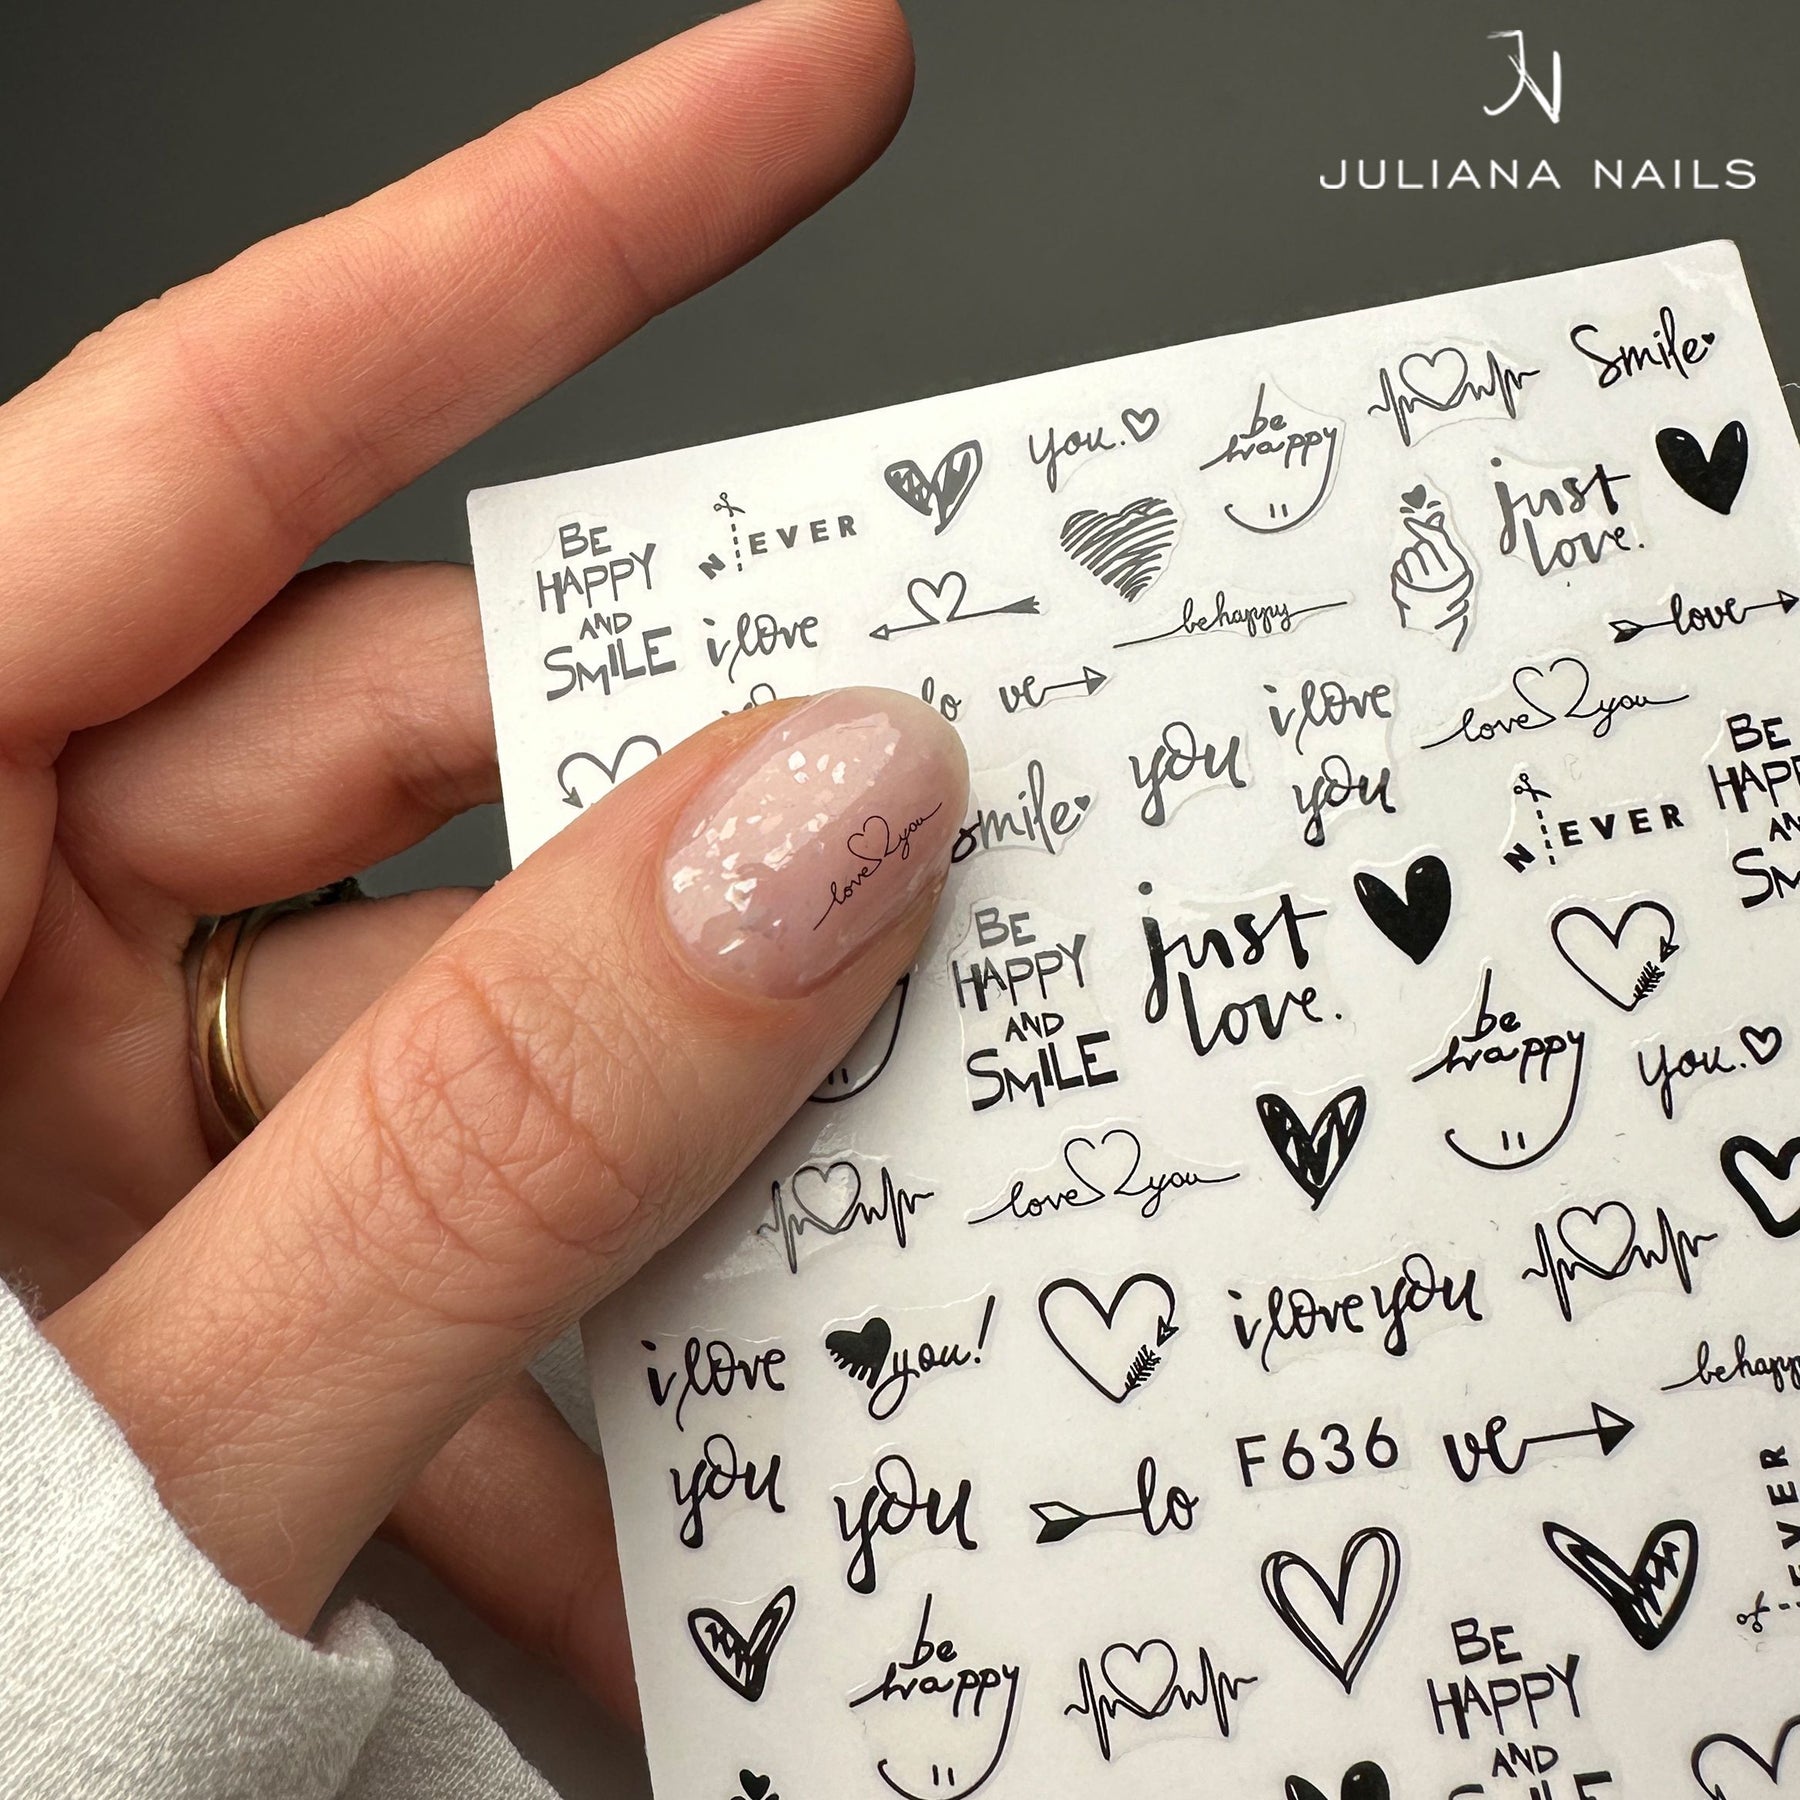 JN
JULIANA NAILS
Smile
be
happy
you.
just
love.
N EVER
BE
HAPPY
AND
SMILE
i love
be happy
love
lo ve
i love
you
you
love you
BE
HAPP
AN
SM
N EVER
love you
smile
just
love.
BE
HAPPY
AND
SMILE
be
happy
you.
love you
i love
you
you!
i love you
be happy
F636
ve
lo
you
EVER
be
happy
BE
HAPPY
AND